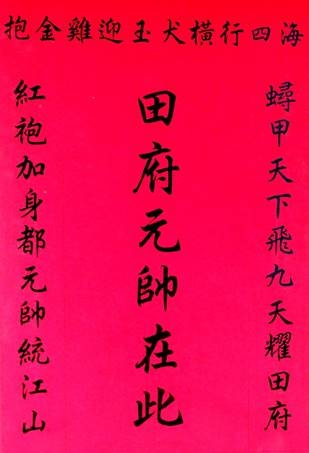 抱金雞迎玉犬橫行四海
蟳甲天下飛九天耀田府
田府元帥在此
紅袍加身都元帥統江山